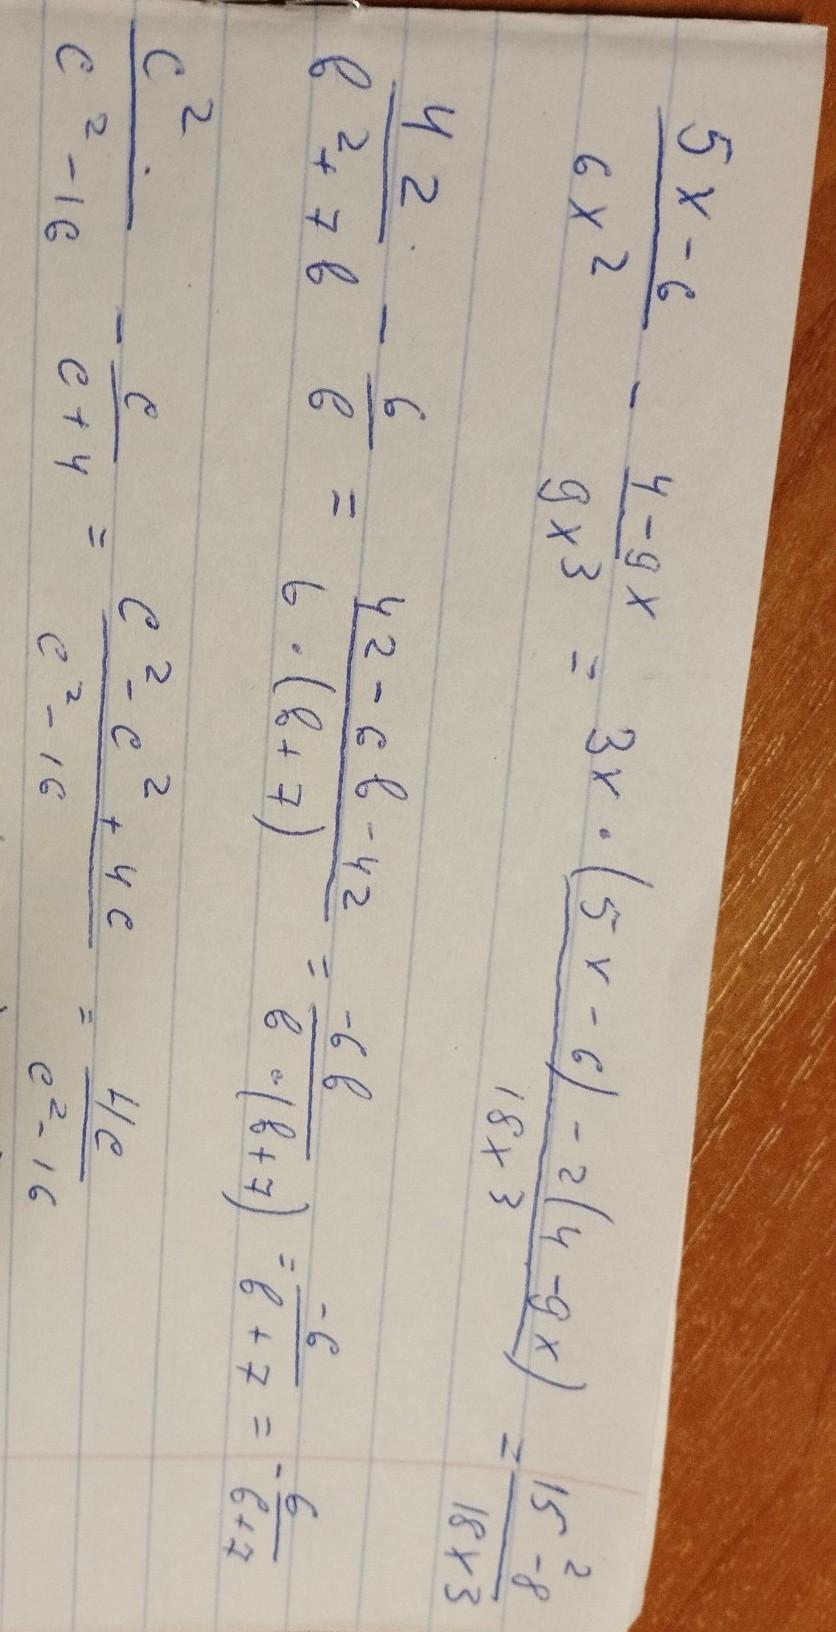 (5x-6)/(6x²) - (4-9x)/(9x³) = (3x·(5x-6)-2(4-9x))/(18x³) = (15²-8)/(18x³)
42/(b²+7b) - 6/b = (42-6b-42)/(b·(b+7)) = (-6b)/(b·(b+7)) = (-6)/(b+7) = -6/(b+7)
c²/(c²-16) - c/(c+4) = (c²-c²+4c)/(c²-16) = 4c/(c²-16)